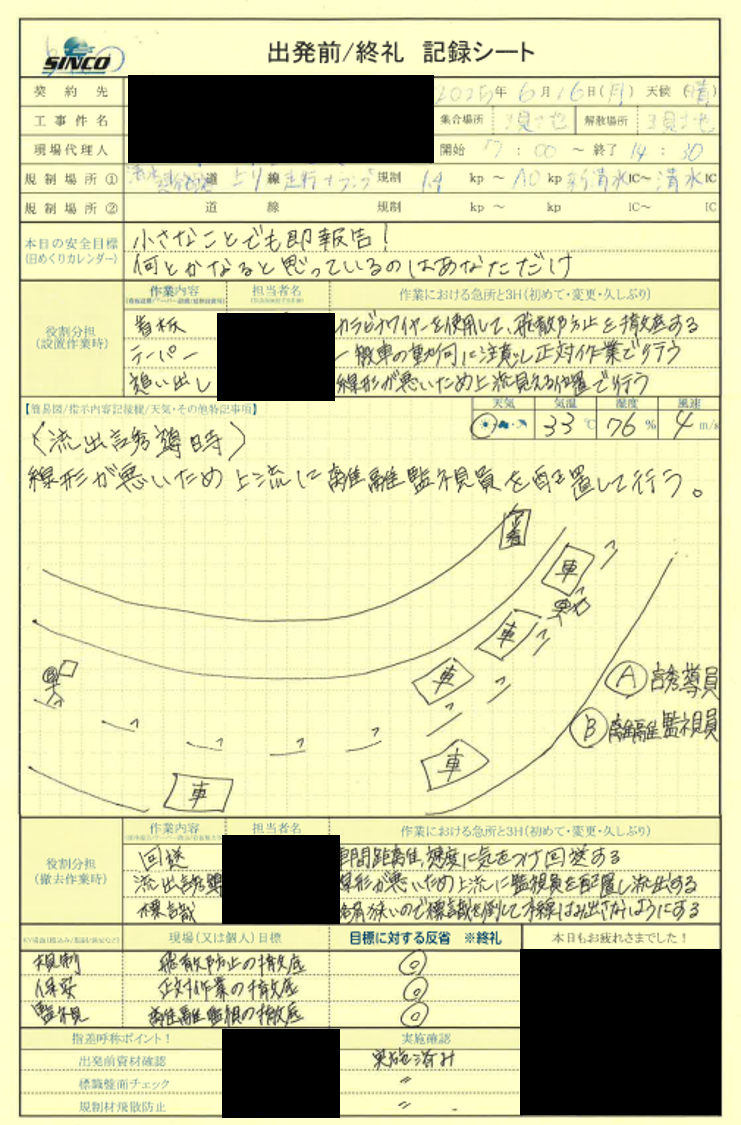 SINCO
出発前/終礼 記録シート
契約先
2025年 6月16日(月) 天候(晴)
工事件名 集合場所 解散場所
現場代理人 開始 : 00 ~ 終了 14 : 30
規制場所① 道 線 上り 走行+ランプ 規制 kp ~ kp 新清水IC~ 清水IC
規制場所② 道 線 規制 kp ~ kp IC~ IC
本日の安全目標 小さなことでも即報告!
(日めくりカレンダー) 何とかなると思っているのはあなただけ
役割分担
(設置作業時)
作業内容 担当者名 作業における急所と3H(初めて・変更・久しぶり)
看板 カラビナワイヤーを使用して、飛散防止を徹底する
テーパー 一般車の動向に注意し正対作業で行う
追い出し 線形が悪いため上流見える位置で行う
【簡易図/指示内容記録欄/天気・その他特記事項】
天気 気温 湿度 風速
33℃ 76% 4m/s
〈流出誘導時〉
線形が悪いため上流に離離監視員を配置して行う。
看
車
車
車
車
車
Ⓐ 誘導員
Ⓑ 離離監視員
役割分担
(撤去作業時)
作業内容 担当者名 作業における急所と3H(初めて・変更・久しぶり)
回送 車間距離、速度に気をつけ回送する
流出誘導 線形が悪いため上流に監視員を配置し流出する
標識 狭いので標識を倒して本線はみ出さないようにする
現場(又は個人)目標 目標に対する反省 ※終礼 本日もお疲れさまでした!
規制 飛散防止の徹底 ◎
保安 正対作業の徹底 ◎
監視 離離監視の徹底 ◎
指差呼称ポイント! 実施確認
出発前資材確認 実施済み
標識盤面チェック 〃
規制材飛散防止 〃